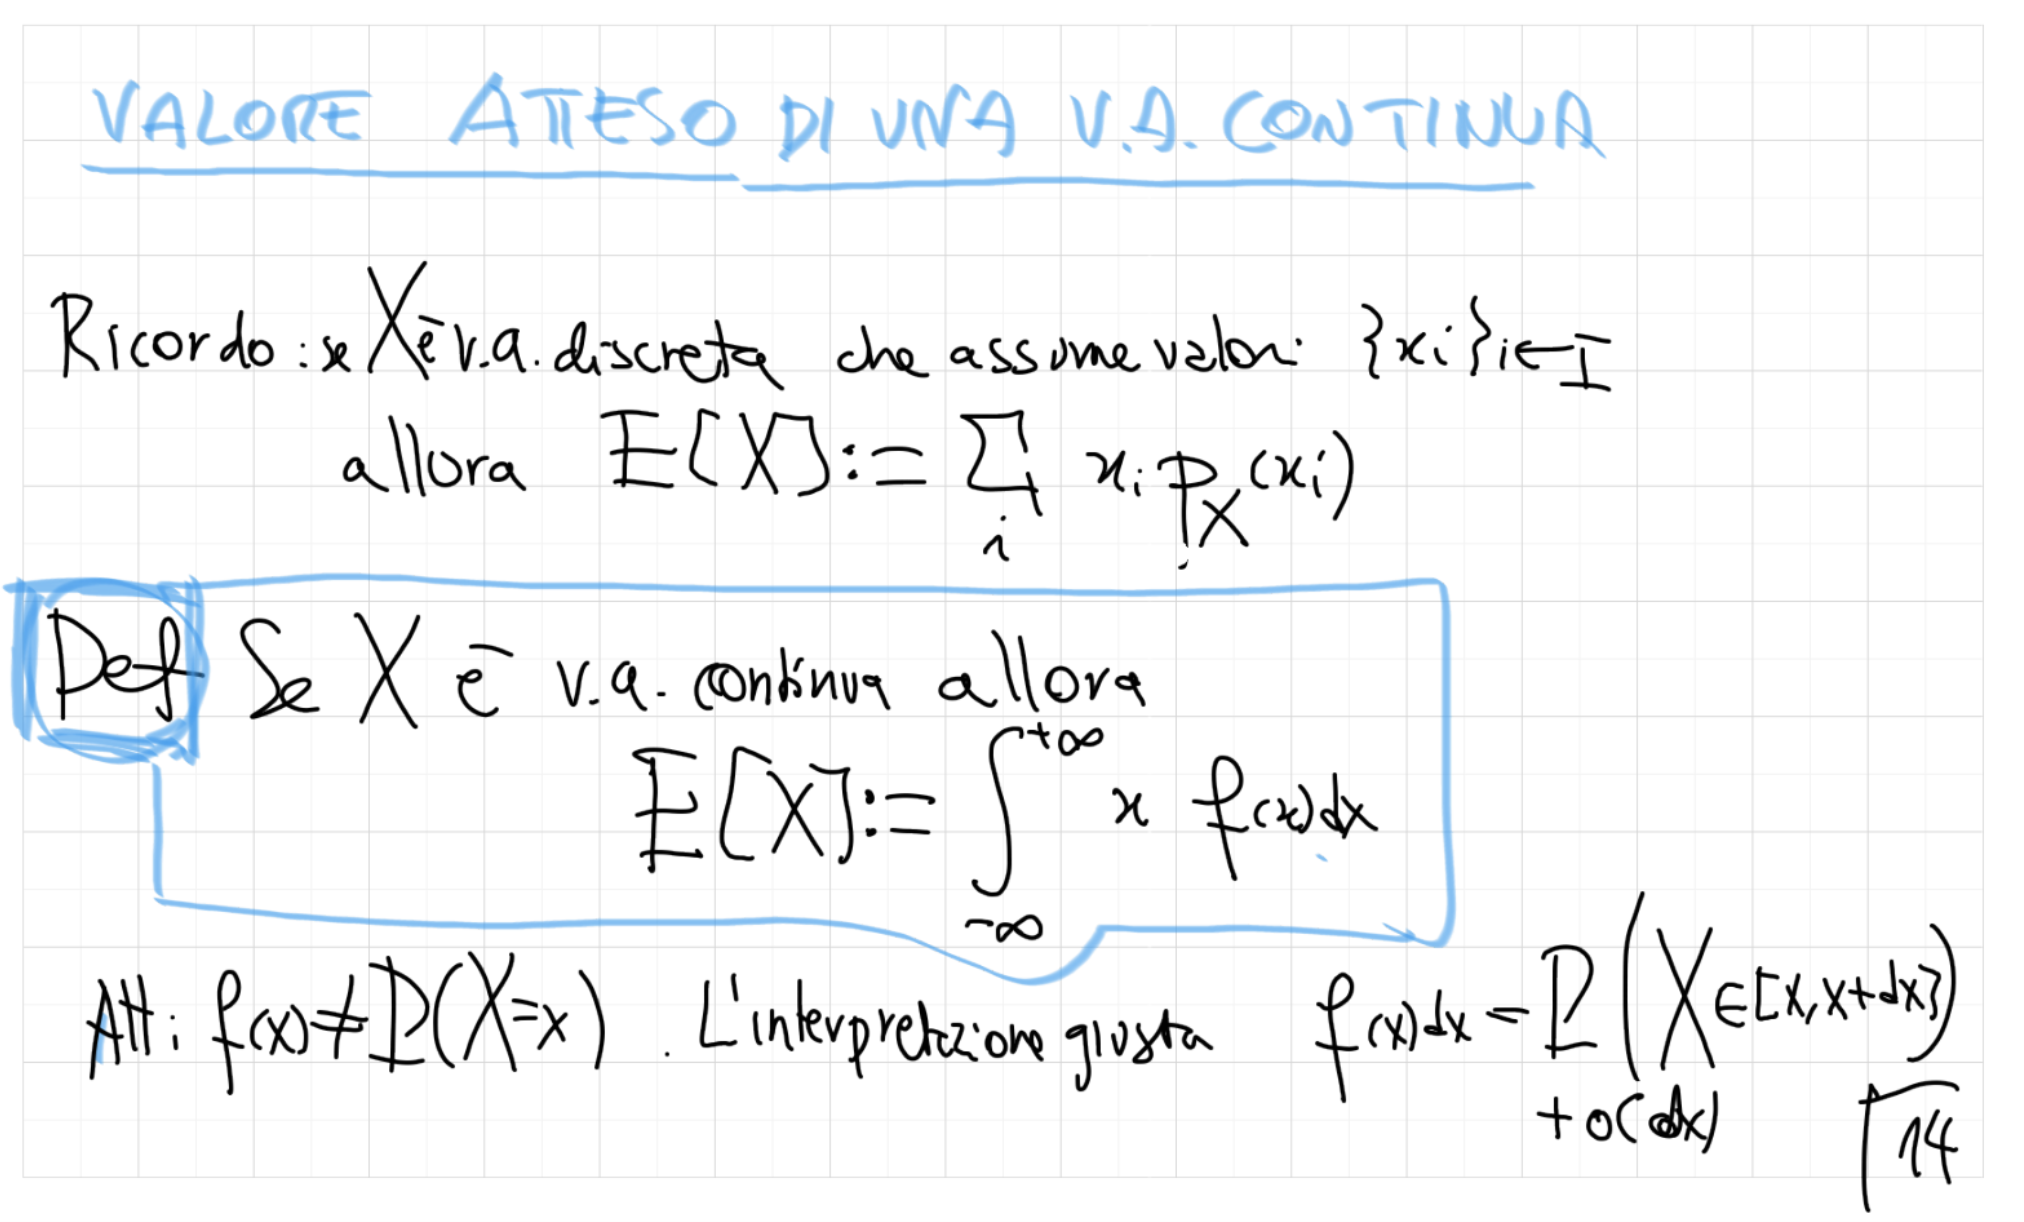 VALORE ATTESO DI UNA V.A. CONTINUA
Ricordo: se X è v.a. discreta che assume valori {xi}i∈I
allora E[X] := ∑_i x_i p_X(x_i)
Def Se X è v.a. continua allora
E[X] := ∫_{-∞}^{+∞} x f(x)dx
Att: f(x) ≠ P(X=x). L'interpretazione giusta f(x)dx = P(X∈[x,x+dx])
+ o(dx)
14